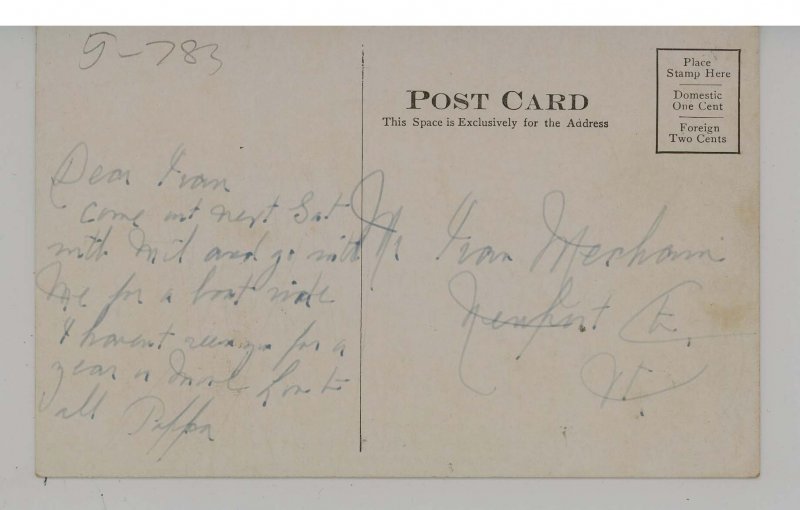 5-783
POST CARD
This Space is Exclusively for the Address
Place
Stamp Here
Domestic
One Cent
Foreign
Two Cents
Dear Ivan
Come out next Sat
with Mil and go with
Me for a boat ride
I havent seen you for a
year or More Love to
all Pappa
Mr Ivan Mecham
Newport
Vt